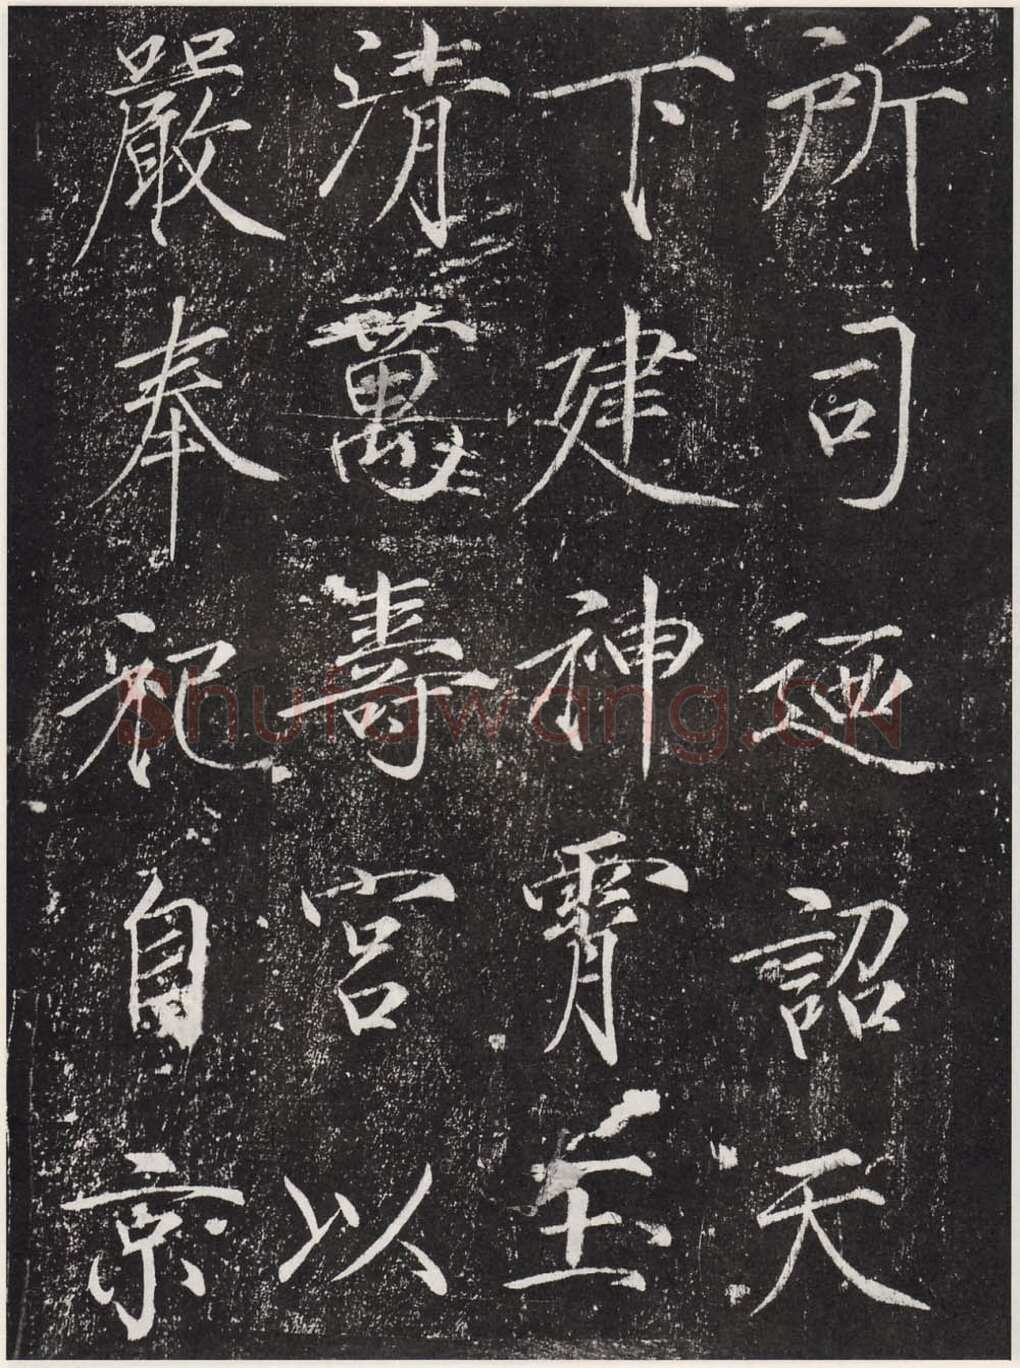 所司迺詔天
下建神霄玉
清萬壽宮以
嚴奉祀自京
Shufawang.CN